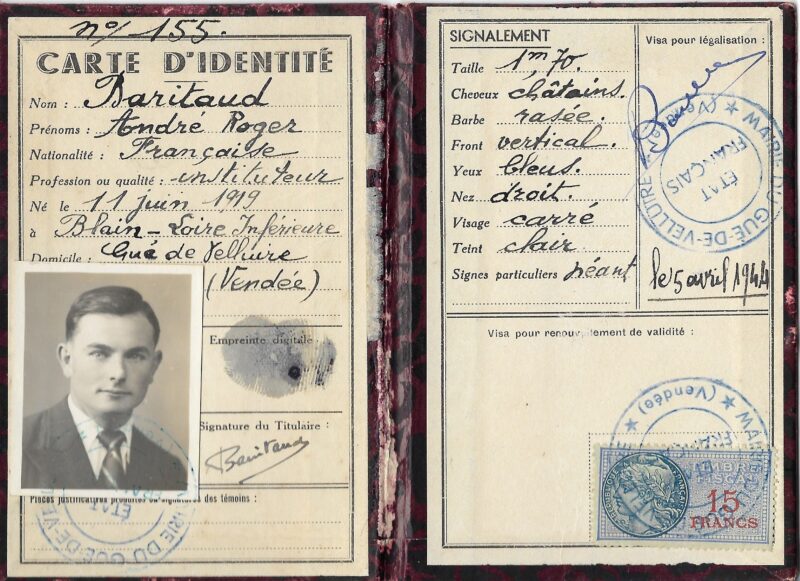 nº 155.
CARTE D'IDENTITÉ
Nom : Baritaud
Prénoms : André Roger
Nationalité : Française
Profession ou qualité : instituteur
Né le 11 juin 1919
à Blain - Loire Inférieure
Domicile : Gué de Velluire
(Vendée)
Empreinte digitale
Signature du Titulaire :
Baritaud
Pièces justificatives produites ou signatures des témoins :
MAIRIE DU GUÉ-DE-VE
ÉTAT
SIGNALEMENT
Taille 1m70.
Cheveux châtains.
Barbe rasée.
Front vertical.
Yeux bleus.
Nez droit.
Visage carré
Teint clair
Signes particuliers néant
Visa pour légalisation :
MAIRIE DU GUÉ-DE-VELLUIRE
ÉTAT
FRANÇAIS
le 5 avril 1944
Visa pour renouvellement de validité :
(Vendée)
TIMBRE
FISCAL
15
FRANCS